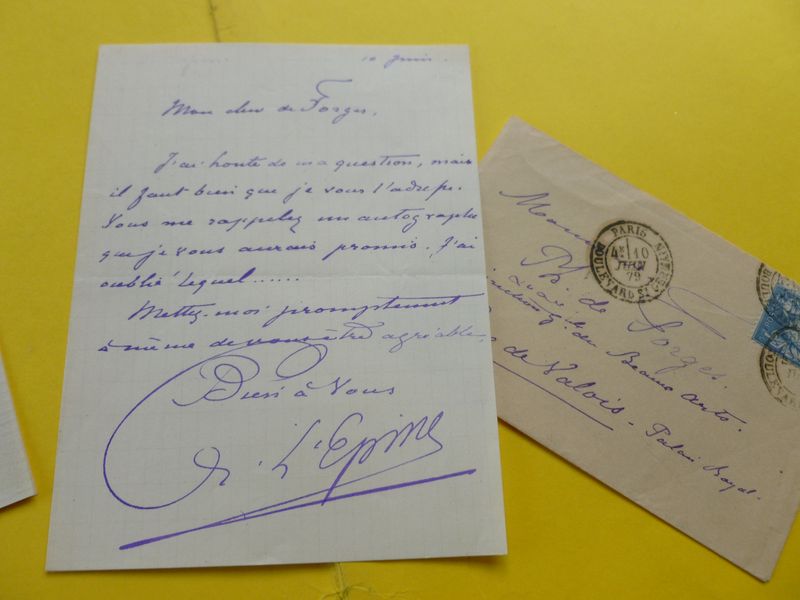 10 Juin.
Mon cher de Forges,
J'ai honte de ma question, mais
il faut bien que je vous l'adresse.
Vous me rappelez un autographe
que je vous aurais promis. J'ai
oublié lequel......
Mettez-moi promptement
à même de vous être agréable.
Bien à Vous
L'Epine
PARIS
4E 10
JUIN
79
BOULEVARD ST GERMAIN
Ph. de Forges.
des Beaux Arts.
de Valois - Palais Royal.